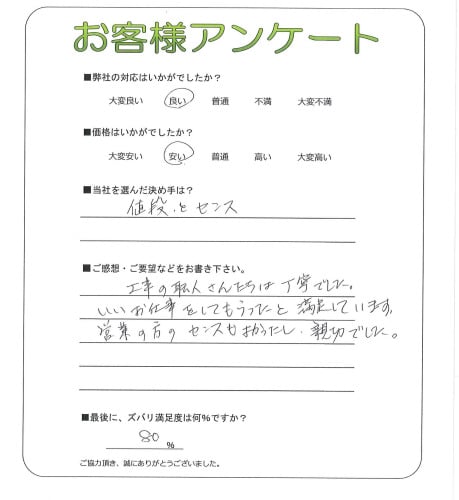 お客様アンケート
■弊社の対応はいかがでしたか？
大変良い 良い 普通 不満 大変不満
■価格はいかがでしたか？
大変安い 安い 普通 高い 大変高い
■当社を選んだ決め手は？
値段とセンス
■ご感想・ご要望などをお書き下さい。
工事の職人さんたちは丁寧でした。
いいお仕事をしてもらったと満足しています。
営業の方のセンスもよかったし、親切でした。
■最後に、ズバリ満足度は何%ですか？
80 %
ご協力頂き、誠にありがとうございました。